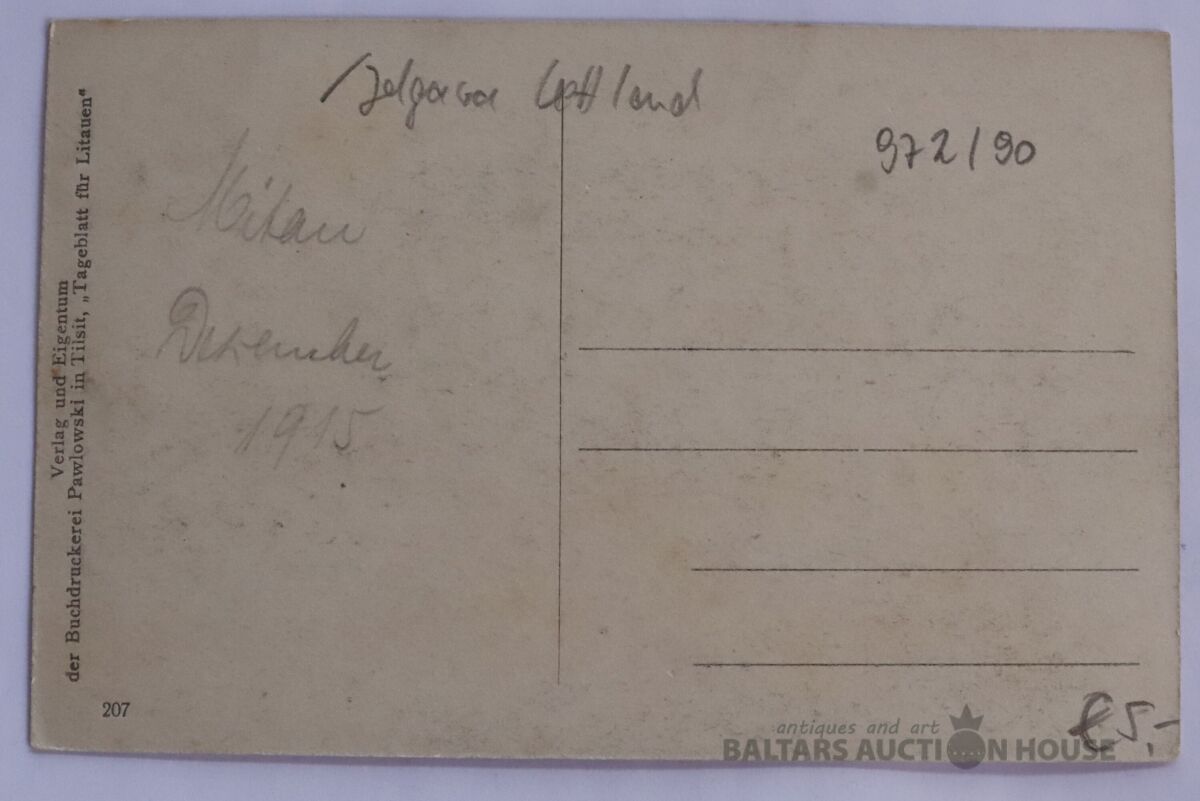 Jelgava Lettland
972/90
Mitau
Dezember
1915
Verlag und Eigentum
der Buchdruckerei Pawlowski in Tilsit, „Tageblatt für Litauen“
207
€5.-
antiques and art
BALTARS AUCTION HOUSE